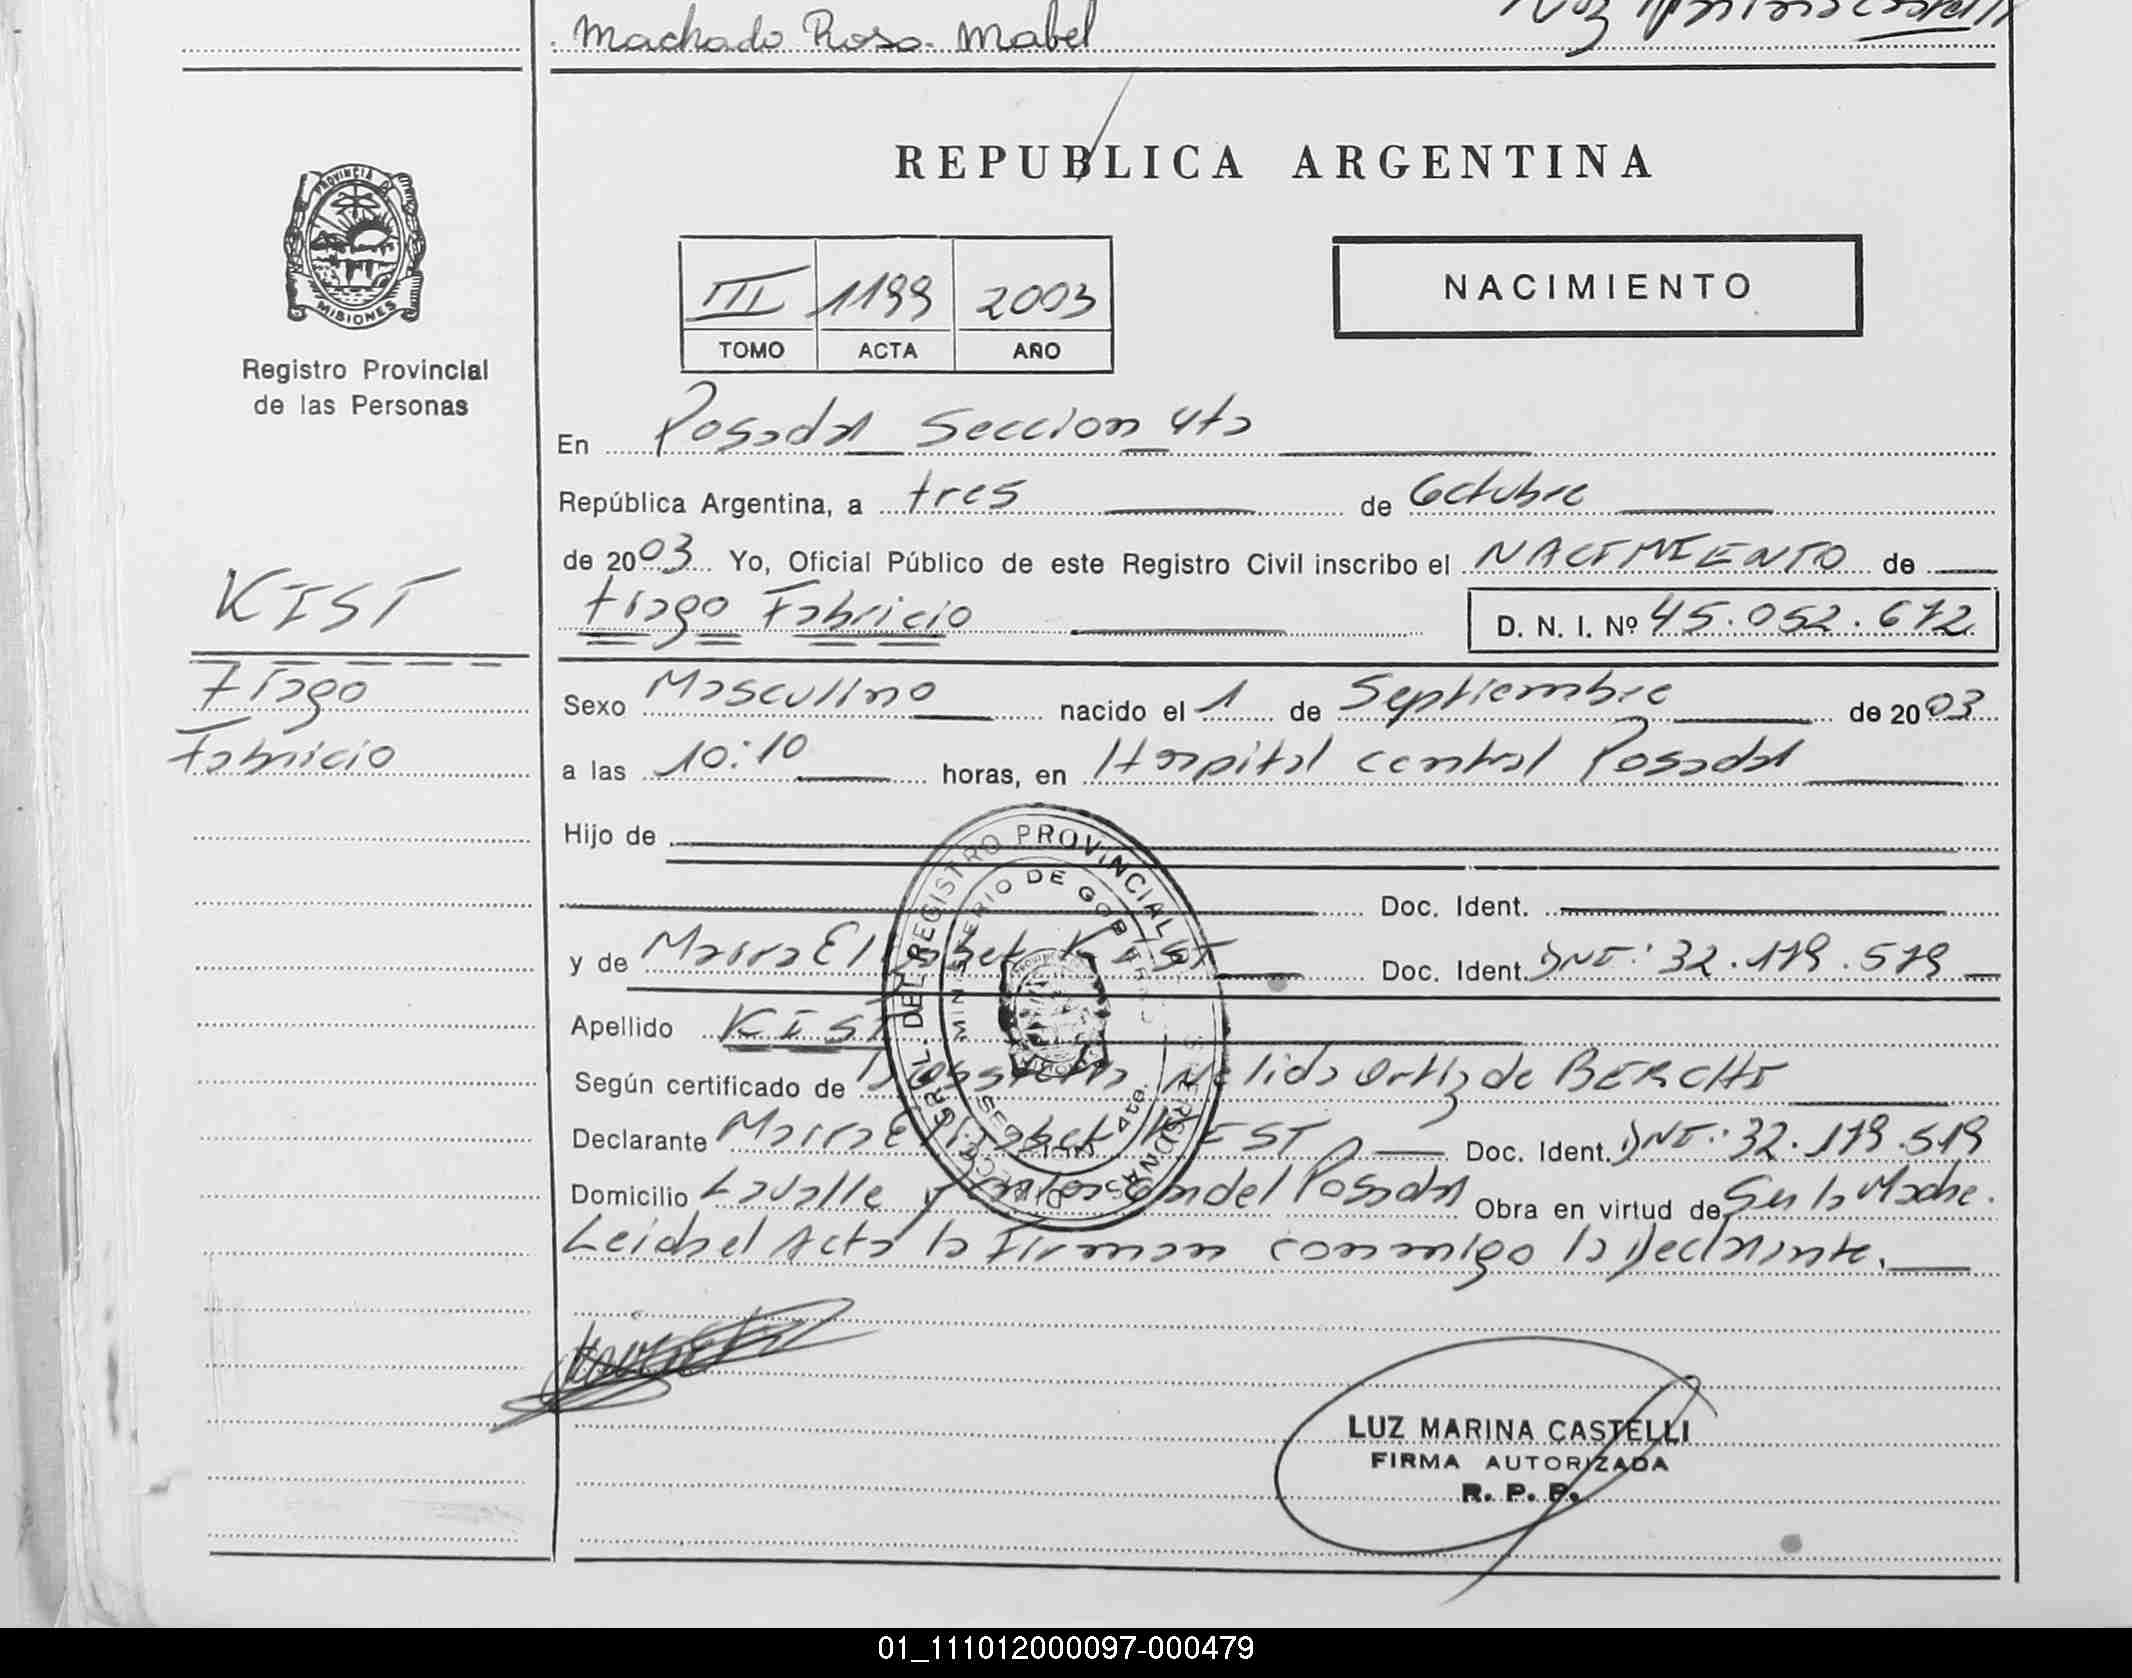 Machado Rosa Mabel
REPUBLICA ARGENTINA
PROVINCIA DE
MISIONES
Registro Provincial
de las Personas
NACIMIENTO
III 1199 2003
TOMO ACTA AÑO
En Posadas Seccion 4ta
República Argentina, a tres de Octubre
de 2003 Yo, Oficial Público de este Registro Civil inscribo el NACIMIENTO de
KIST
tiago Fabricio D. N. I. Nº 45.052.672
Tiago
Fabricio
Sexo Masculino nacido el 1 de Septiembre de 2003
a las 10:10 horas, en Hospital central Posadas
Hijo de
Doc. Ident.
y de Maria Elisabet KIST Doc. Ident. DNI: 32.179.579
Apellido KIST
Según certificado de Nelida Ortiz de BERCHI
Declarante Maria Elisabet KIST Doc. Ident. DNI: 32.179.519
Domicilio Lavalle y Posadas Obra en virtud de Ser la Madre.
Leida el Acta la Firman conmigo la Declarante.
DIRECC. GRAL. DEL REGISTRO PROVINCIAL PERSONAS
MINISTERIO DE GOBIERNO
SECCION 4ta.
LUZ MARINA CASTELLI
FIRMA AUTORIZADA
R. P. P.
01_111012000097-000479